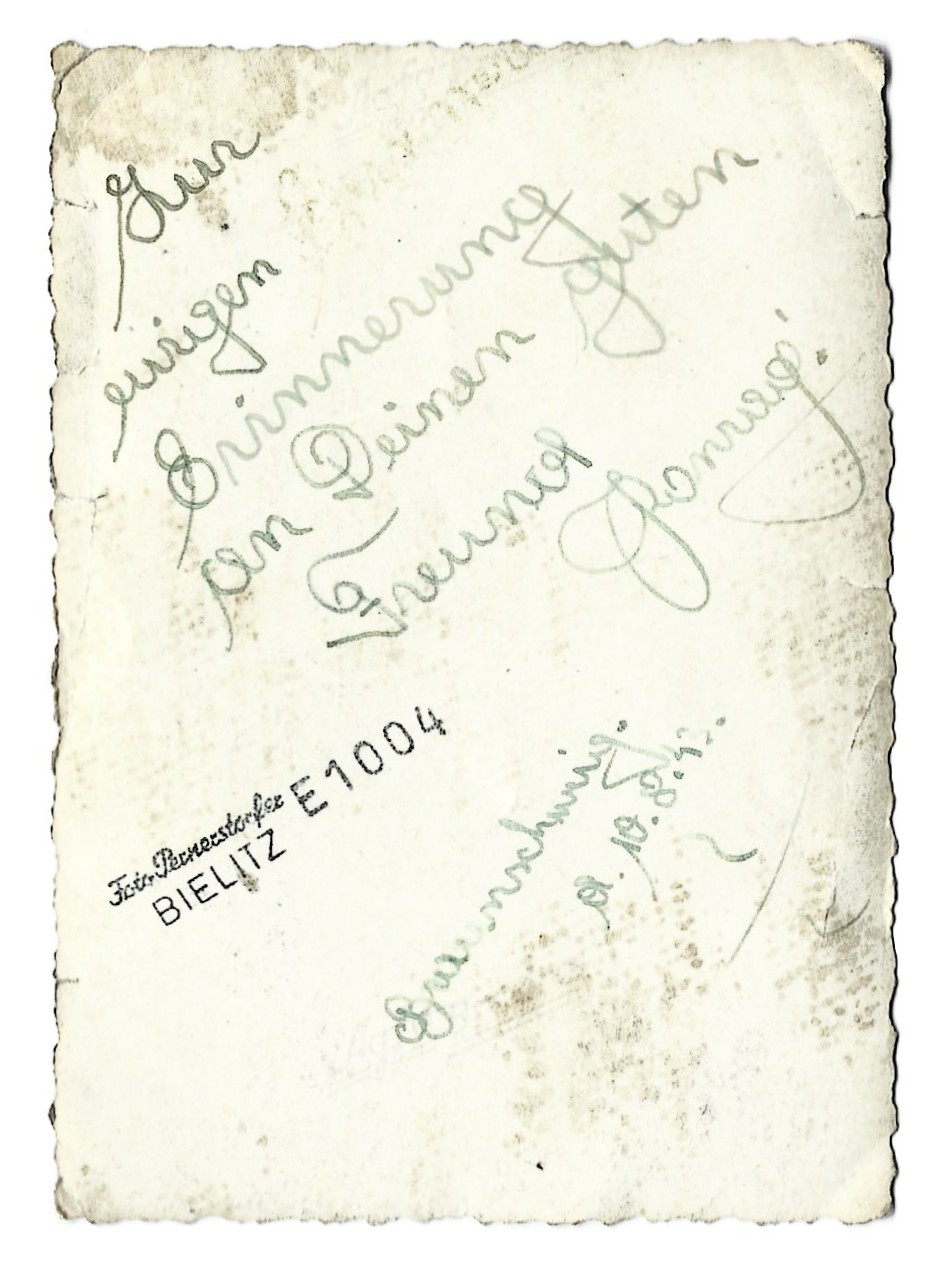 Zur
ewigen
Erinnerung
an Deinen guten
Freund
Foto Pernerstorfer
BIELITZ E1004
Braunschweig.
d. 10.8.